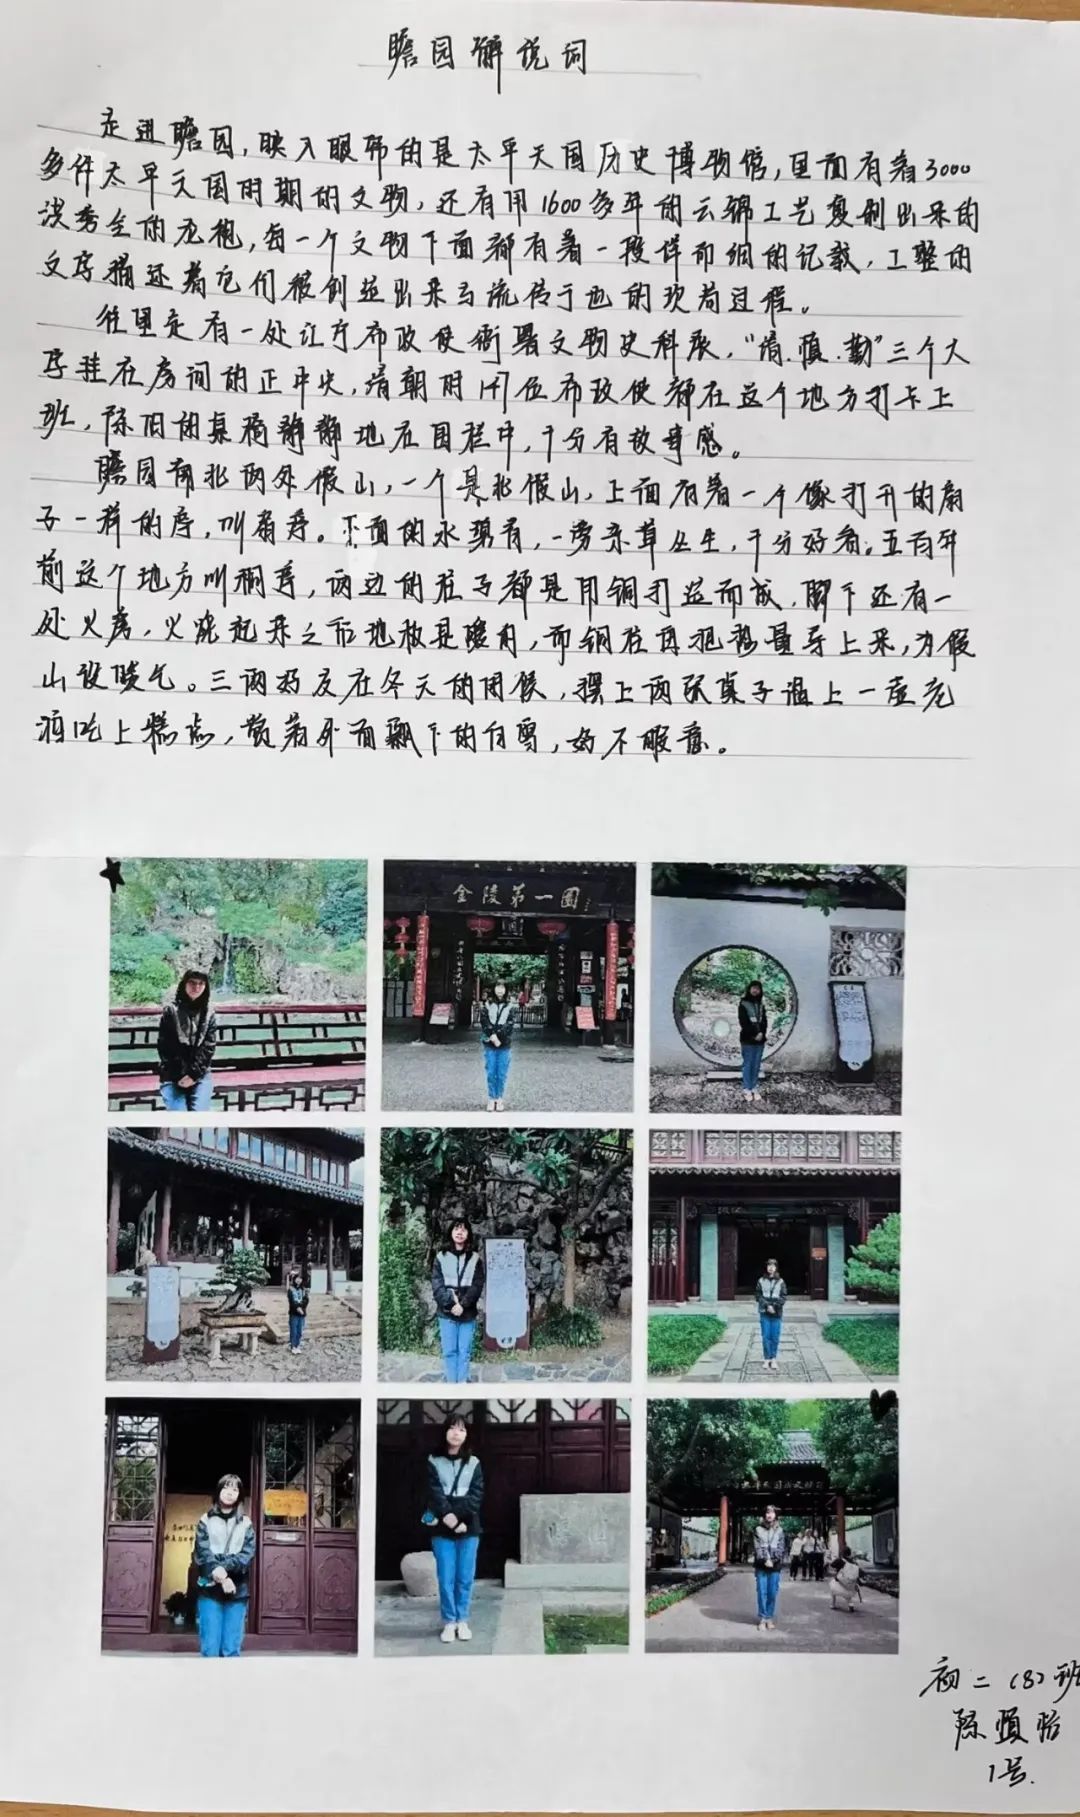 瞻园解说词
走进瞻园，映入眼帘的是太平天国历史博物馆，里面有着3000
多件太平天国时期的文物，还有用1600多年的云锦工艺复制出来的
洪秀全的龙袍，每一个文物下面都有着一段详而细的记载，工整的
文字描述着它们被创造出来与流传于世的坎苛过程。
往里走有一处江宁布政使衙署文物史料展，“清.慎.勤”三个大
字挂在房间的正中央，清朝时 位布政使都在这个地方打卡上
班，陈旧的桌椅静静地在围栏中，十分有故事感。
瞻园南北两处假山，一个是北假山，上面有着一个像打开的扇
子一样的亭，叫扇亭。下面的水碧青，一旁杂草丛生，十分好看。五百年
前这个地方叫铜亭，两边的柱子都是用铜打造而成，脚下还有一
处火房，火烧起来之后地板是暖的，而铜柱再把热量导上来，为假
山设暖气。三两好友在冬天的时候，摆上两张桌子温上一壶花
酒吃上糕点，赏着外面飘下的白雪，好不暇意。
金陵第一园
初二（8）班
陈 怡
1号.